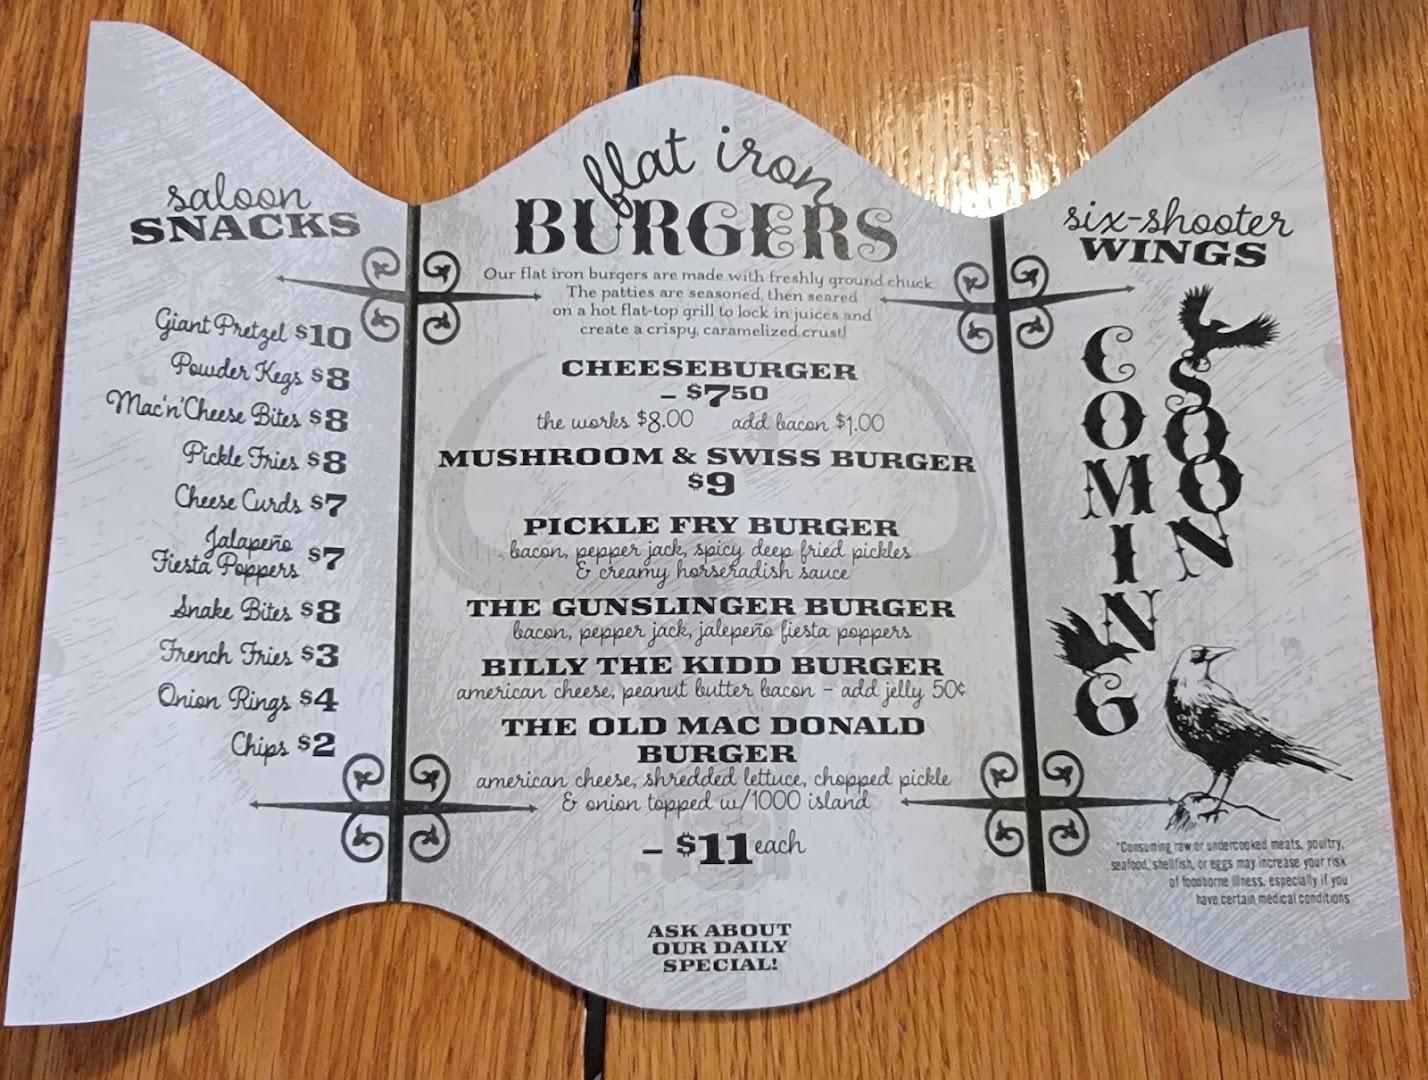 saloon
SNACKS
Giant Pretzel $10
Powder Kegs $8
Mac'n'Cheese Bites $8
Pickle Fries $8
Cheese Curds $7
Jalapeño
Fiesta Poppers $7
Snake Bites $8
French Fries $3
Onion Rings $4
Chips $2
flat iron
BURGERS
Our flat iron burgers are made with freshly ground chuck.
The patties are seasoned, then seared
on a hot flat-top grill to lock in juices and
create a crispy, caramelized crust!
CHEESEBURGER
– $750
the works $8.00 add bacon $1.00
MUSHROOM & SWISS BURGER
$9
PICKLE FRY BURGER
bacon, pepper jack, spicy deep fried pickles
& creamy horseradish sauce
THE GUNSLINGER BURGER
bacon, pepper jack, jalepeño fiesta poppers
BILLY THE KIDD BURGER
american cheese, peanut butter bacon – add jelly 50¢
THE OLD MAC DONALD
BURGER
american cheese, shredded lettuce, chopped pickle
& onion topped w/1000 island
– $11 each
ASK ABOUT
OUR DAILY
SPECIAL!
six-shooter
WINGS
COMING
SOON
*Consuming raw or undercooked meats, poultry,
seafood, shellfish, or eggs may increase your risk
of foodborne illness, especially if you
have certain medical conditions